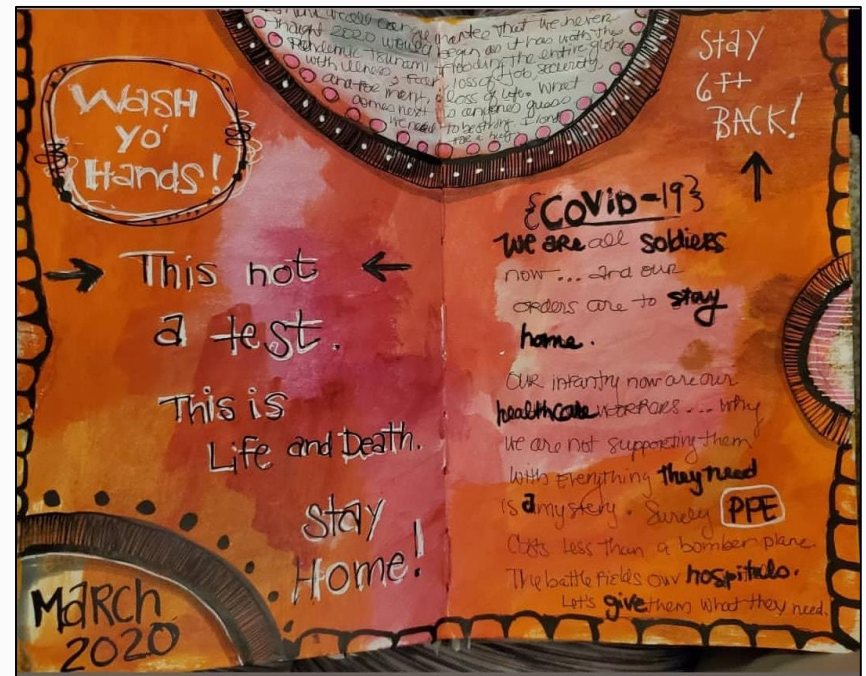 we all can
that we never
thought 2020 would begin as it has with the
Pandemic Tsunami flooding the entire globe
with illness, loss of job security,
and for many, loss of life. What
comes next is
we need to be
for a hug
Wash
yo'
Hands!
This not
a test.
This is
Life and Death.
Stay
Home!
March
2020
Stay
6 Ft
BACK!
{COVID-19}
We are all soldiers
now... and our
orders are to stay
home.
Our infantry now are our
healthcare workers... Why
we are not supporting them
with everything they need
is a mystery. Surely PPE
costs less than a bomber plane.
The battle fields our hospitals.
Let's give them what they need.